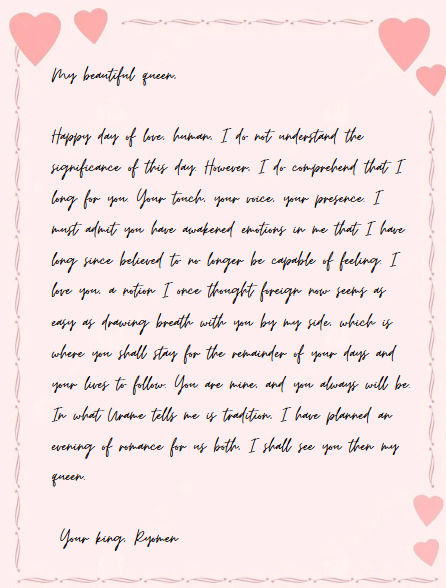 My beautiful queen,
Happy day of love, human, I do not understand the
significance of this day However, I do comprehend that I
long for you. Your touch, your voice, your presence. I
must admit you have awakened emotions in me that I have
long since believed to no longer be capable of feeling. I
love you, a notion I once thought foreign now seems as
easy as drawing breath with you by my side, which is
where you shall stay for the remainder of your days and
your lives to follow. You are mine, and you always will be.
In what Urame tells me is tradition, I have planned an
evening of romance for us both, I shall see you then my
queen.
Your king, Ryomen